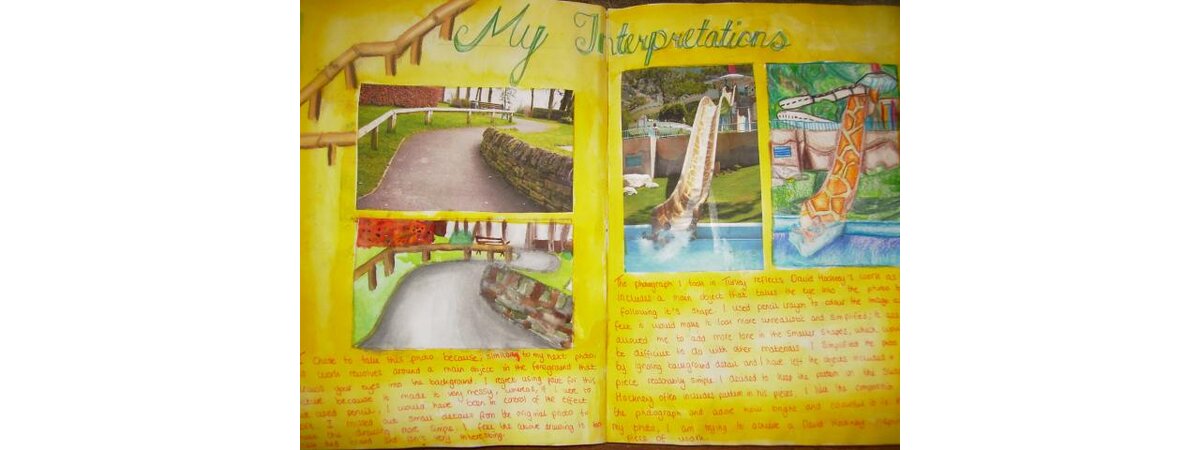 My Interpretations
I chose to take this photo because, similarly to my next photo,
work revolves around a main object in the foreground that
your eyes into the background. I regret using for this
because it made it very messy, whereas, if I were to
used pencil, I would have been in control of the effect
I missed out small details from the original photo to
the drawing more simple. I feel the above drawing is too
and isn't very interesting.
The photograph I took in Turkey reflects David Hockney's work as
includes a main object that takes the eye into the photo
following it's shape. I used pencil crayon to colour the image as
felt it would make it look more unrealistic and simplified; it also
allowed me to add more tone in the smaller shapes, which would
be difficult to do with other materials. I simplified the photo
by ignoring background detail and I have left the objects included
piece reasonably simple. I decided to keep the pattern on the slide
Hockney often includes pattern in his pieces. I like the composition
the photograph and adore how bright and colourful it is. In
my photo, I am trying to achieve a David Hockney
piece of work.